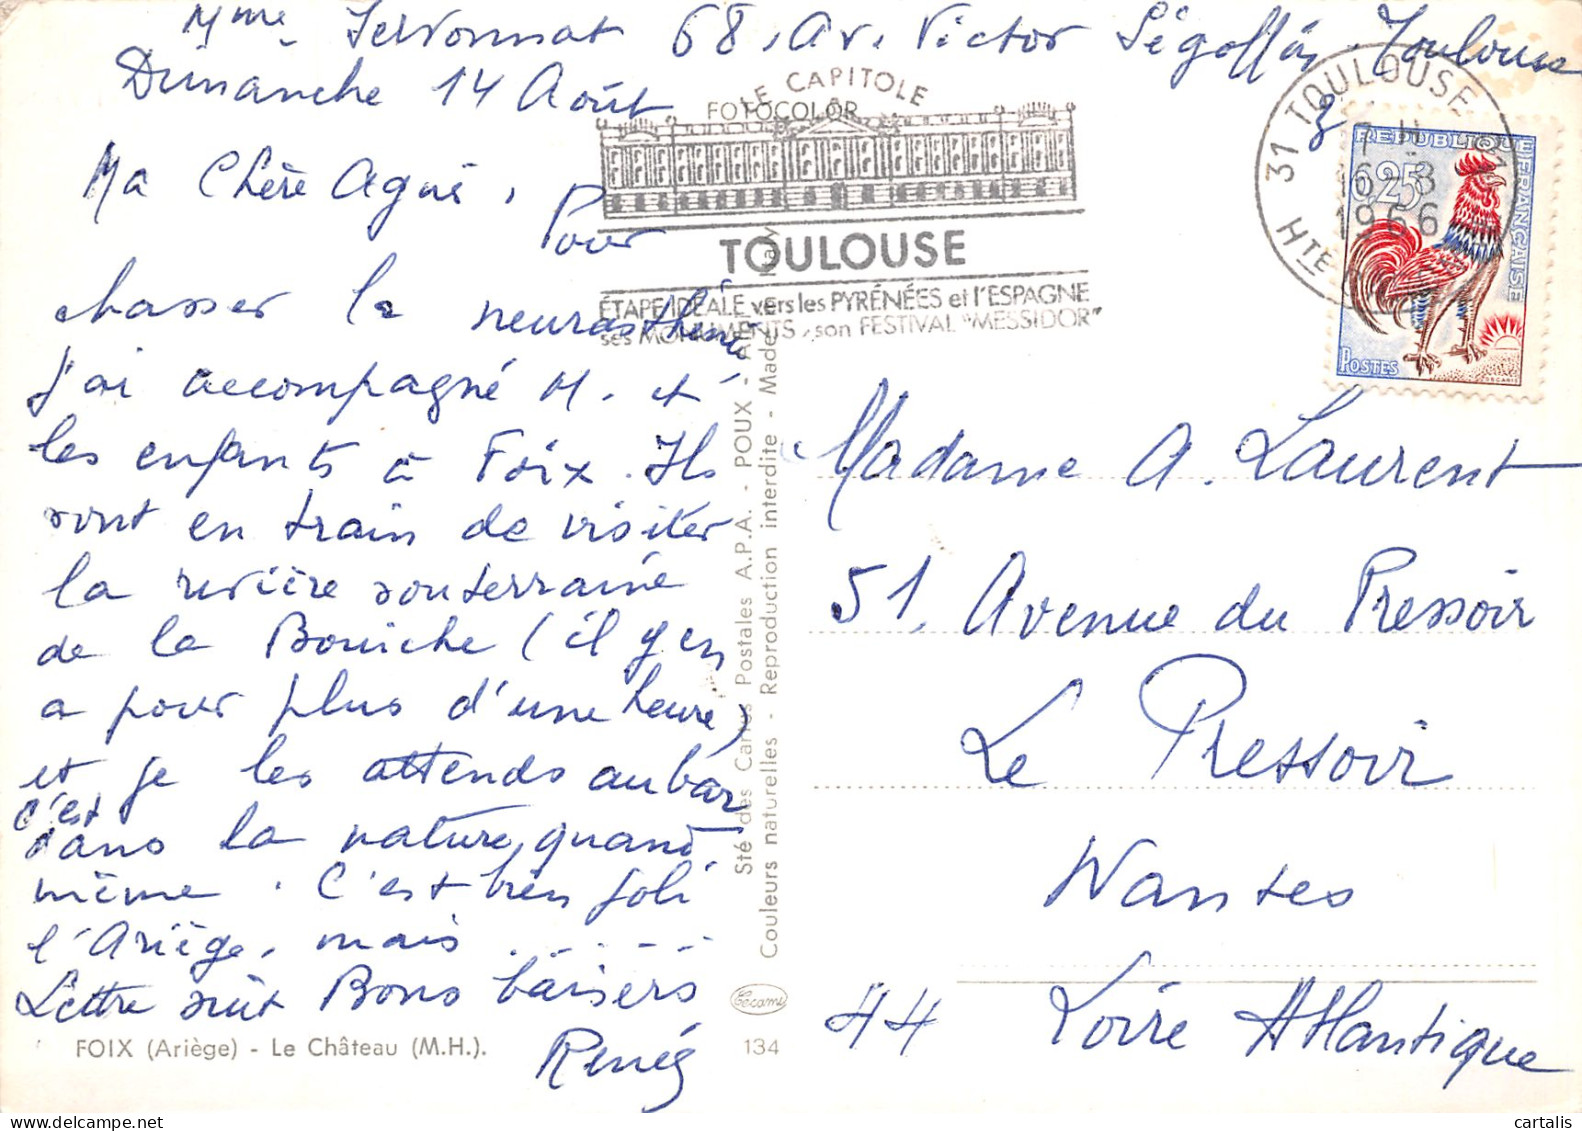 Mme 68, Av. Victor Ségoffin. Toulouse
Dimanche 14 Août
Ma Chère Agnè,
Pour
chasser la neurasthénie
j'ai accompagné M. et
les enfants à Foix. Ils
sont en train de visiter
la rivière souterraine
de la Bouiche (il y en
a pour plus d'une heure)
et je les attends au bar
c'est
dans la nature, quand
même. C'est bien joli
l'Ariège, mais . . . . . .
Lettre suit Bons baisers
Renée
FOIX (Ariège) - Le Château (M.H.).
FOTOCOLOR
LE CAPITOLE
TOULOUSE
ÉTAPE IDÉALE vers les PYRÉNÉES et l'ESPAGNE
ses MONUMENTS, son FESTIVAL "MESSIDOR"
31 TOULOUSE
17 H
16-8
1966
HTE
REPUBLIQUE FRANÇAISE
0,25
POSTES
DECARIS
Sté des Cartes Postales A.P.A. - POUX - ALBI
Couleurs naturelles - Reproduction interdite - Made in Italy
Cecami
134
Madame A. Laurent
51, Avenue du Pressoir
Le Pressoir
Nantes
44 Loire Atlantique